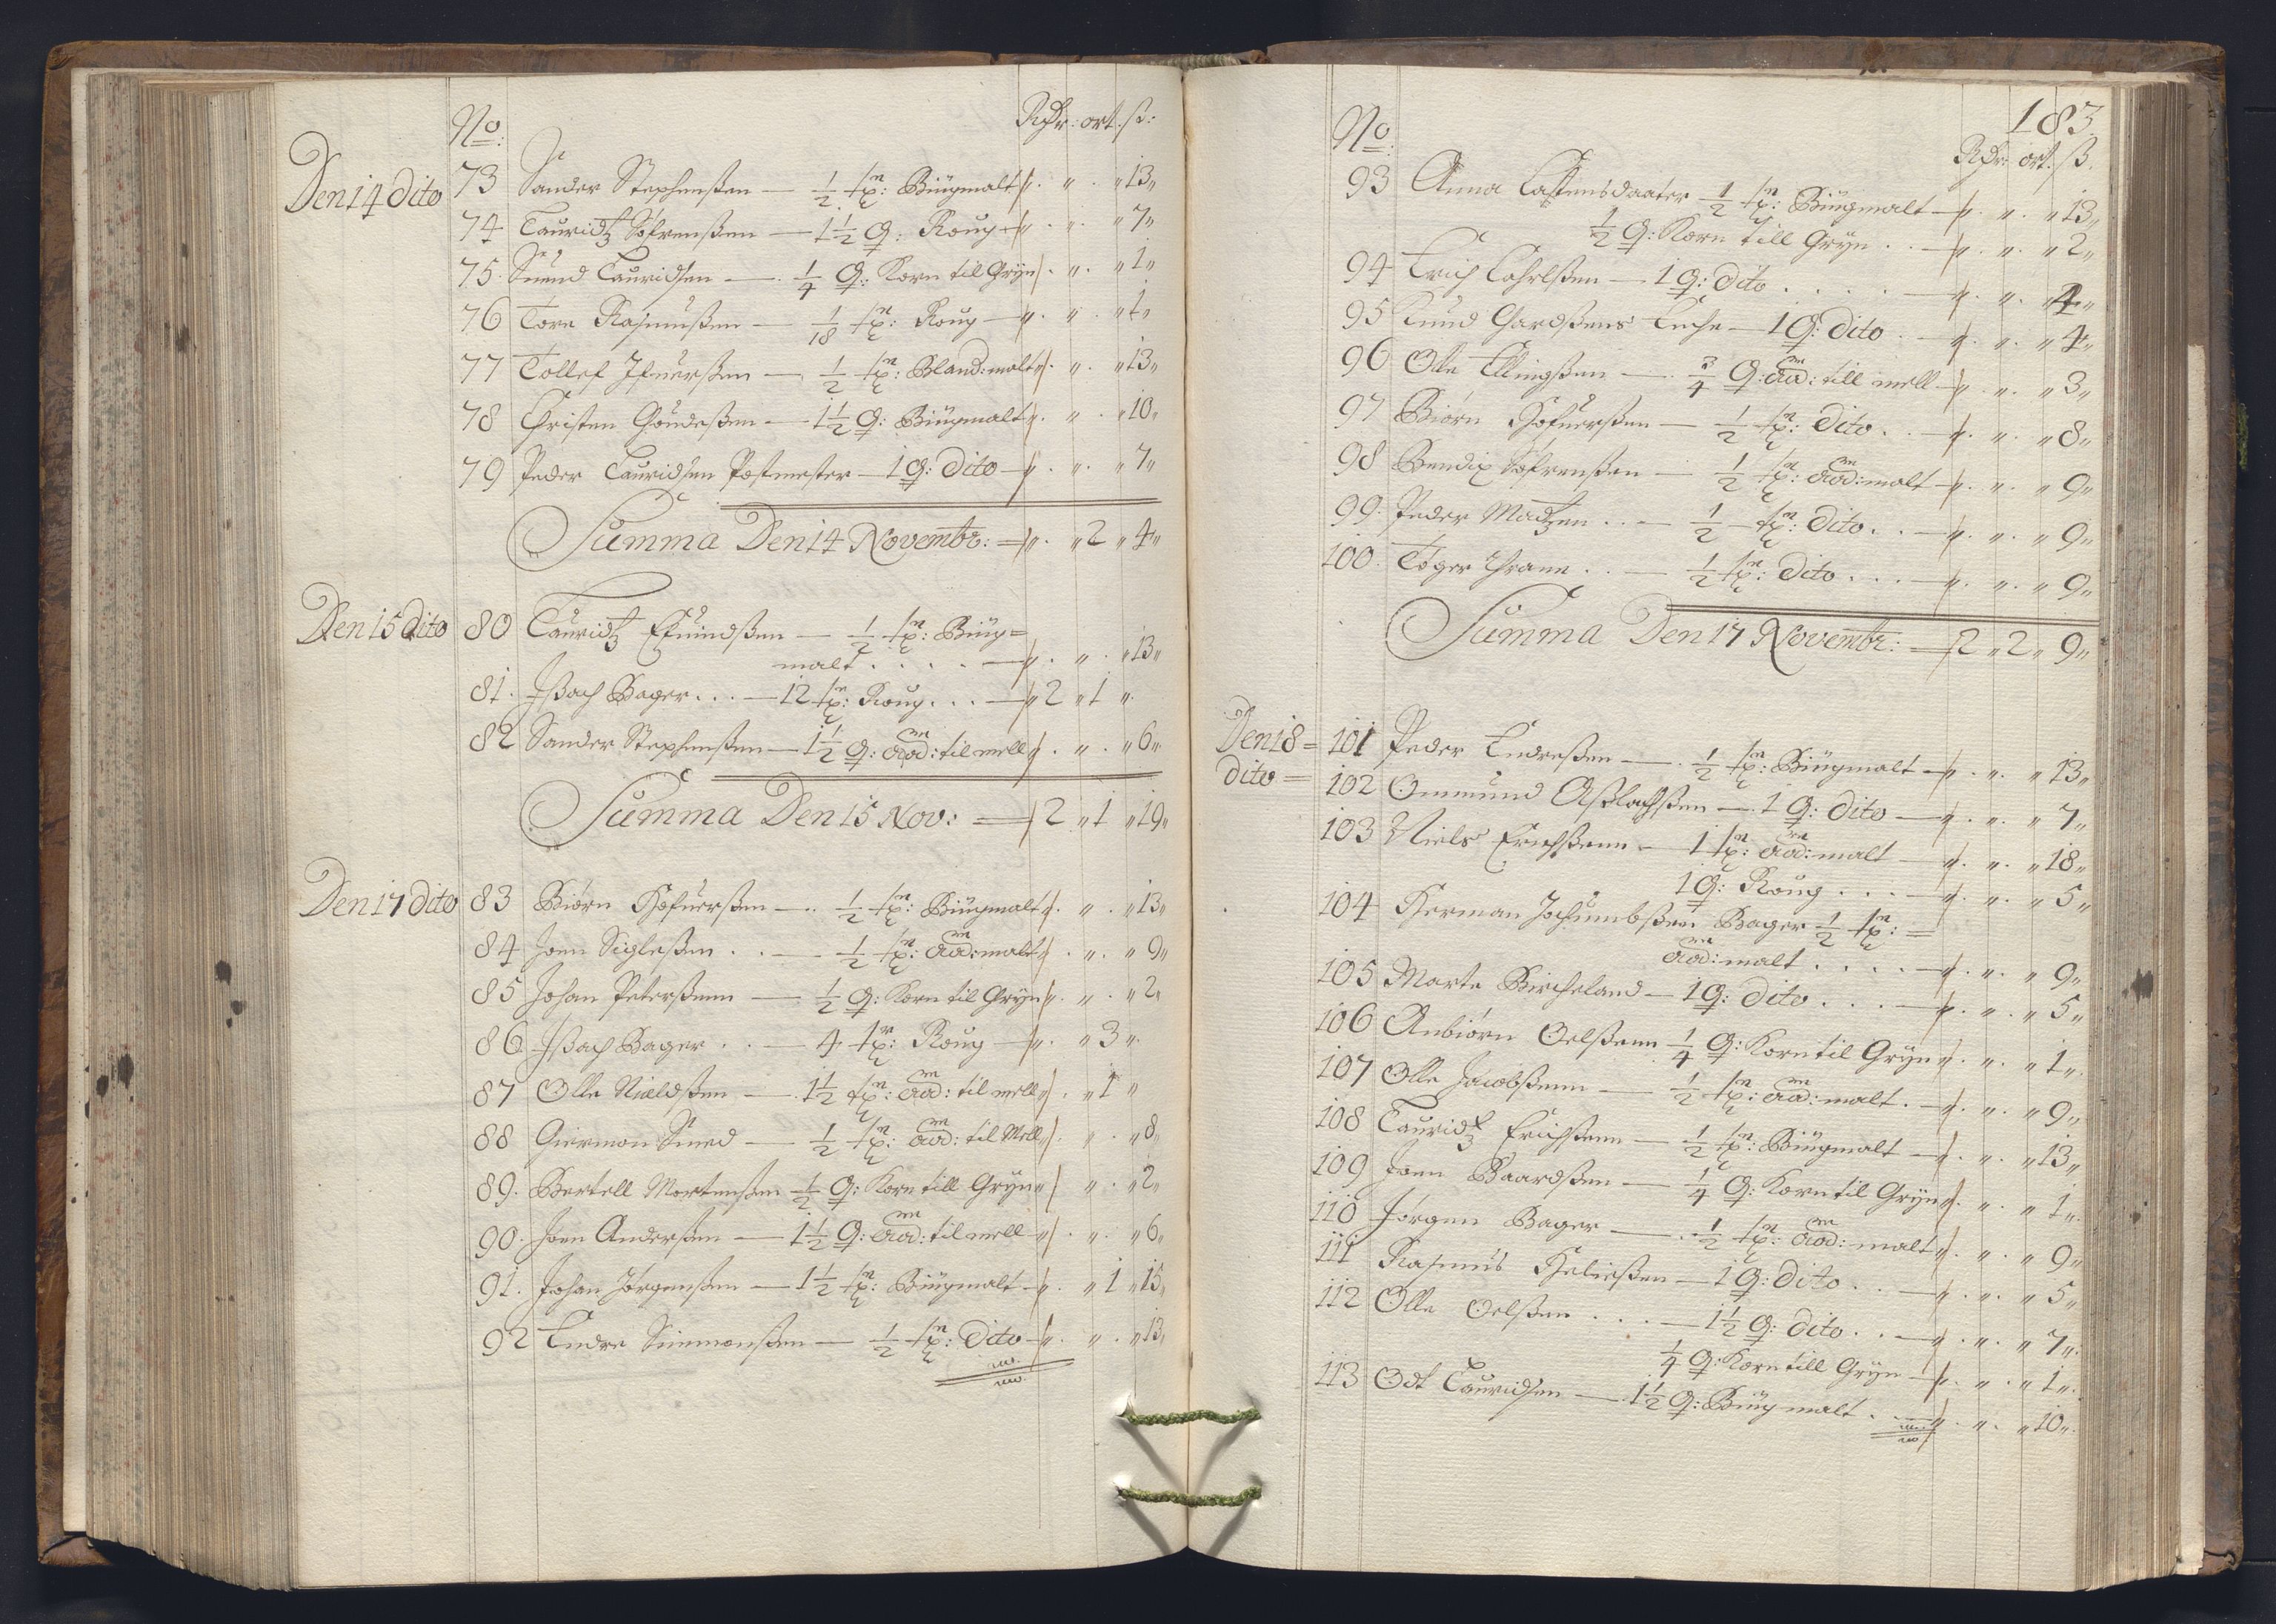 No: Rdr: ort: ß:
Den 14 dito 73 Sander Stephensßen — 1/2 tn: Biügmalt „ „ 13„
74 Lauridtz Söfrenßen — 1 1/2 q: Roug „ „ 7„
75. Suend Lauridsen — 1/4 q: Korn til Gryn „ „ 1„
76 Tore Rasmusßen — 1/18 tn: Roug — „ „ 1„
77 Tollef Ifuersßen — 1/2 tn: Bland: malt „ „ 13„
78 Christen Goudeßen — 1 1/2 q: Biügmalt „ „ 10„
79 Peder Lauridsen Postmester — 1 q: dito — „ „ 7„
Summa Den 14 Novembr: = „ „ 2 „ 4„
Den 15 dito 80 Lauridtz Efuindßen — 1/2 tn: Biüg=
malt . . . . — „ „ 13„
81. Ißach Bager . . . — 12 tn: Roug . . . — „ 2 „ 1 „
82 Sander Stephenßen — 1 1/2 q: aad: til mell „ „ 6„
Summa Den 15 Nov: = 2 „ 1 „ 19„
Den 17 dito 83 Biörn Hofuersßen — 1/2 tn: Biügmalt „ „ 13„
84 Joen Sigleßen . . — 1/2 tn: aad: malt „ „ 9„
85 Johan Petersßenn — 1/2 q: Korn til Gryn „ „ 2„
86 Ißach Bager . . — 4 tr: Roug — „ „ 3 „
87 Olle Nieldßen — 1 1/2 tn: aad: til mell „ „ 1 „
88 Giermon Smed — 1/2 tn: aad: til Mell „ „ 8„
89. Bertell Mortensßen 1/2 q: Korn till Gryn „ „ 2„
90. Joen Andersßen — 1 1/2 q: aad: til mell „ „ 6„
91. Johan Jörgensßen — 1 1/2 tn: Biügmalt — „ „ 1 „ 15„
92 Endre Simmonßen — 1/2 tn: Dito — „ „ 13„
183
No Rdr: ort: ß.
93 Anna Castensdaater 1/2 tn: Biügmalt — „ „ 13„
1/2 q: Korn till Gryn . . — „ „ 2„
94 Erich Carlsßen — 1 q: dito . . . . — „ „ 4„
95 Knud Gardßens Enche — 1 q: dito . — „ „ 4„
96 Olle Ellingßen — 3/4 q: aad: till mell — „ „ 3„
97 Biörn Hofuersßen — 1/2 tn: dito . . — „ „ 8„
98 Bendix Söfrenßen — 1/2 tn: aad: malt — „ „ 9„
99. Peder Madtzen . . — 1/2 tn: dito . . — „ „ 9„
100. Töger Thrane . . — 1/2 tn: dito . . . — „ „ 9„
Summa Den 17 Novembr: = 2 „ 2 „ 9„
Den 18= 101 Peder Endresßen — 1/2 tn: Biügmalt — „ „ 13„
dito = 102 Ommund Aslachßen — 1 q: dito — „ „ 7„
103 Niels Erichßenn — 1 tn: aad: malt — „ „ 18„
1 q: Roug . . . — „ „ 5„
104 Herman Jochumbßen Bager 1/2 tn: =
aad: malt . . . . — „ „ 9„
105 Marte Bircheland — 1 q: dito . . . — „ „ 5„
106 Anbiörn Oelsßenn 1/4 q: Korn til Gryn „ „ 1„
107 Olle Jacobßenn — 1/2 tn: aad: malt . — „ „ 9„
108 Lauridtz Erichßenn — 1/2 tn: Biügmalt — „ „ 13„
109 Joen Baardßen — 1/4 q: Korn til Gryn „ „ 1„
110 Jörgen Bager — 1/2 tn: aad: malt „ „ 9„
111 Rasmus Heließen — 1 q: dito . . — „ „ 5„
112 Olle Oelsßen . . . — 1 1/2 q: dito . . — „ „ 7„
1/4 q: Korn till Gryn — „ „ 1„
113 Odt Lauridsen — 1 1/2 q: Biüg malt . — „ „ 10„